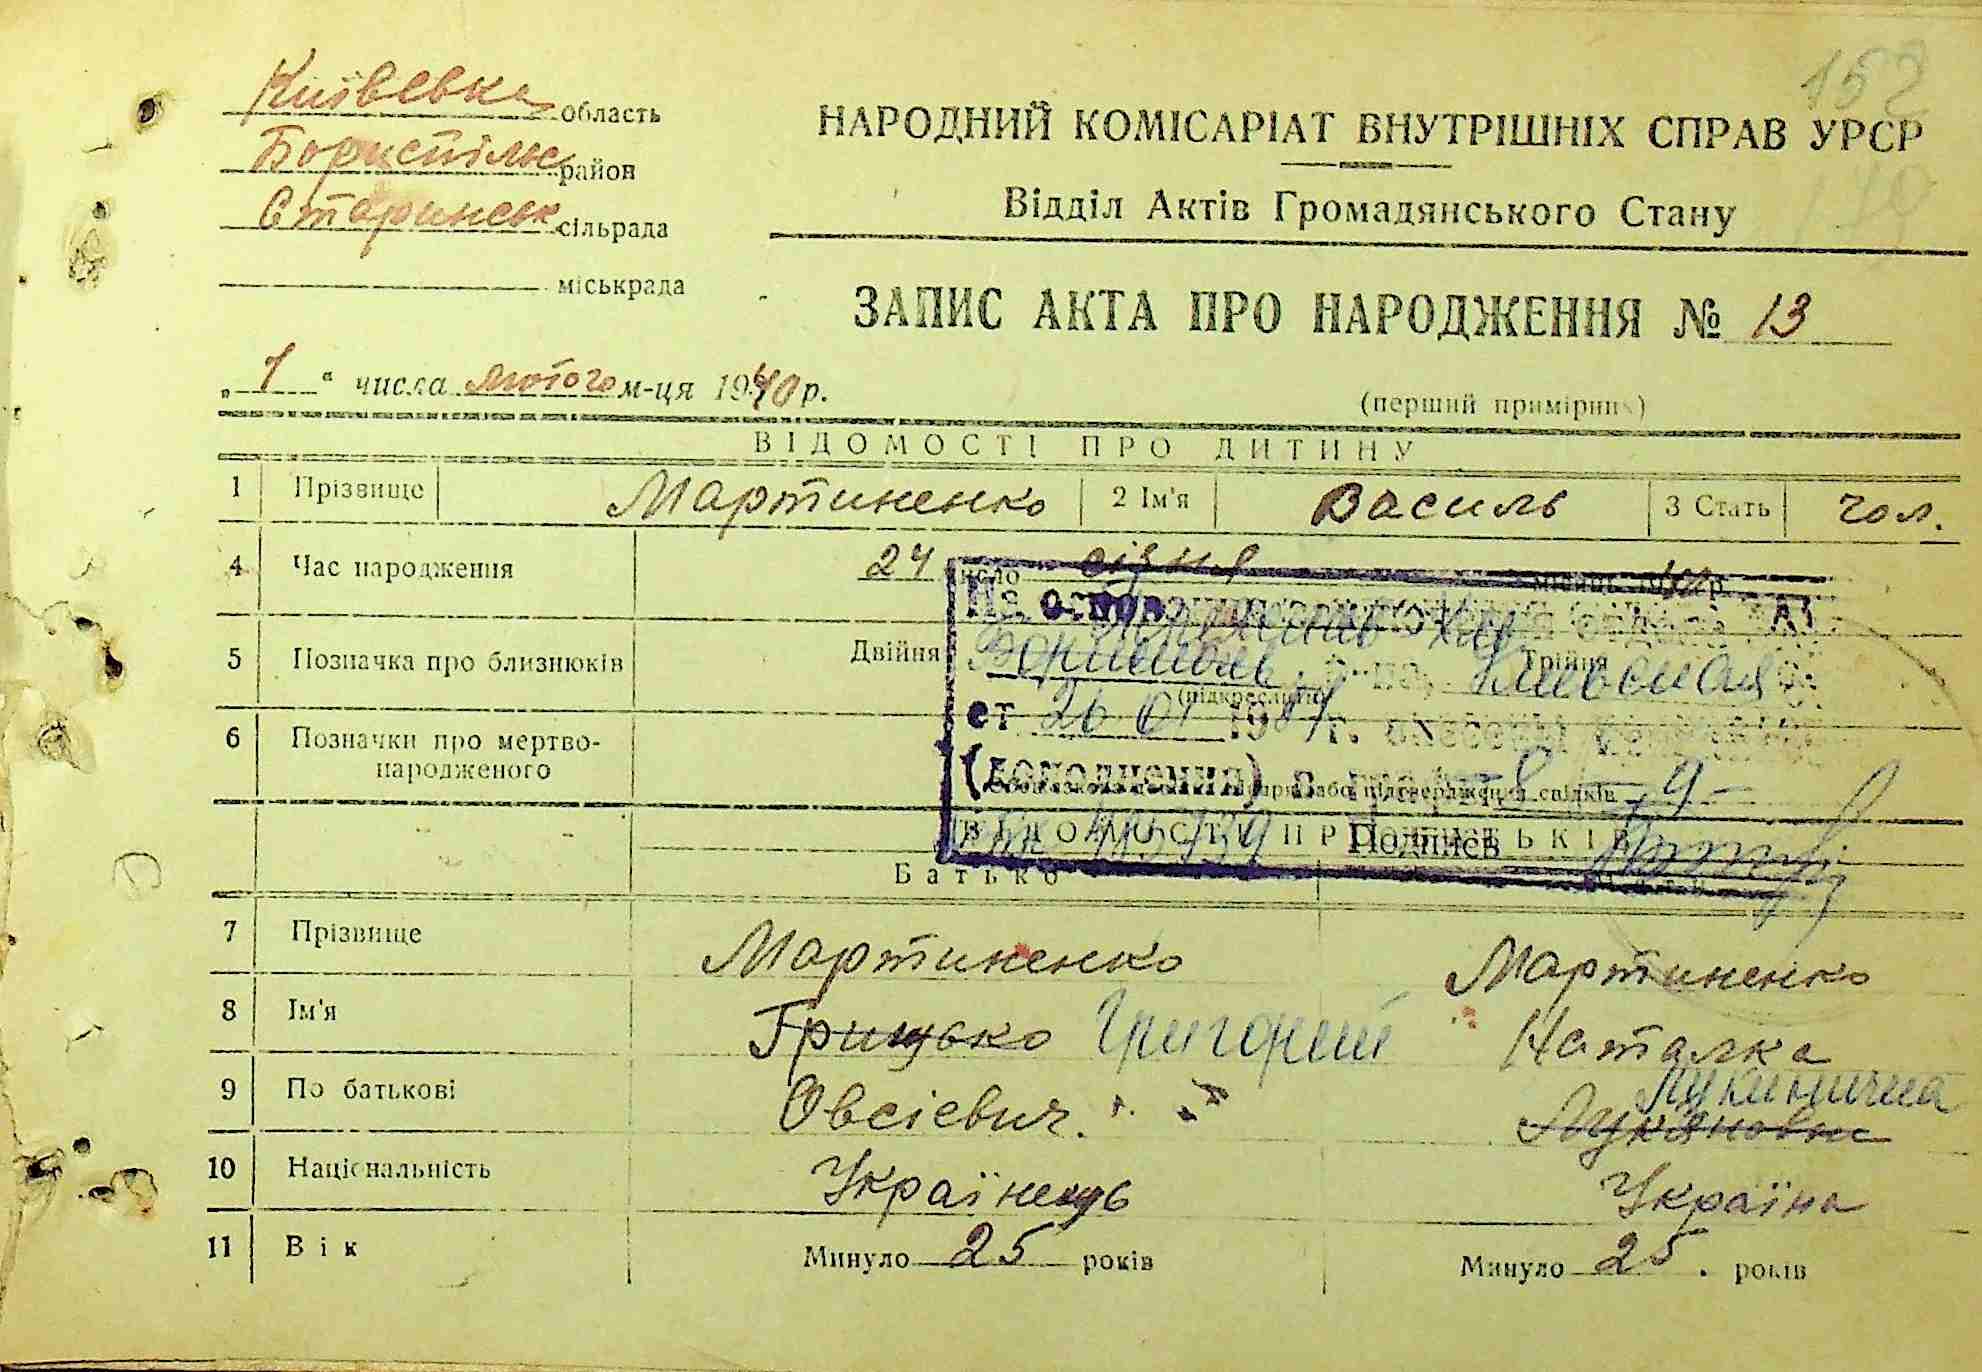 152
Київська область
НАРОДНИЙ КОМІСАРІАТ ВНУТРІШНІХ СПРАВ УРСР
Бориспільс район
Старинськ сільрада
Відділ Актів Громадянського Стану
міськрада
ЗАПИС АКТА ПРО НАРОДЖЕННЯ № 13
„ 1 " числа лютого м-ця 1940 р.
(перший примірник)
ВІДОМОСТІ ПРО ДИТИНУ
1 Прізвище Мартиненко 2 Ім'я Василь 3 Стать чол.
4 Час народження 24 число січня
На основании
5 Позначка про близнюків Двійня Трійня
Борисполь р-на, Киевская
(підкреслити)
от 26 01 19 г.
6 Позначки про мертво-
народженого
(дополнения) 8 - 9 -
ВІДОМОСТІ ПРО БАТЬКІВ
Подпись
Батько
7 Прізвище Мартиненко Мартиненко
8 Ім'я Грицько Григорий Наталка
9 По батькові Овсієвич. Лукинична
Лукяновна
10 Національність Українець Україна
11 Вік Минуло 25 років Минуло 25. років